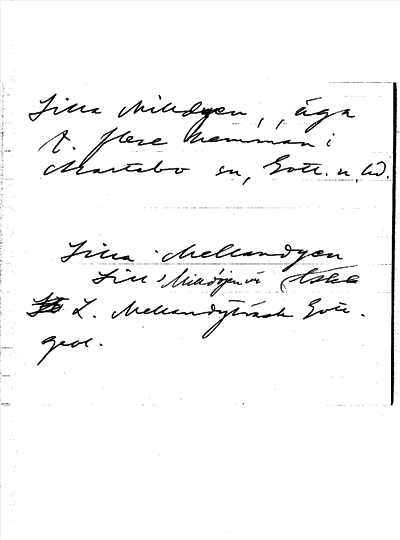 Lilla Milldyen, äga
t. flere hemman i
Martebo sn, Gotl. n. hd.
Lilla Mellandyen
Lill
L. Mellandyträsk Gotl.
geol.